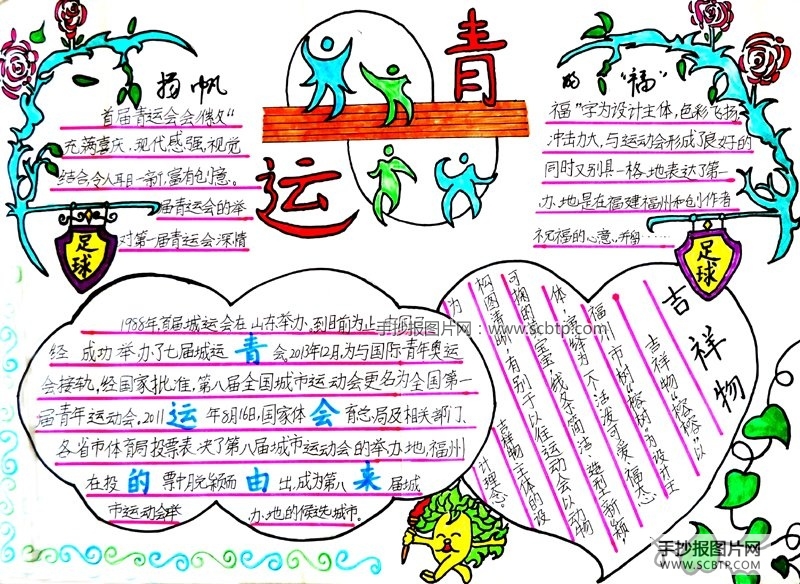 青
运
扬帆
首届青运会会徽以“
充满喜庆、现代感强,视觉
结合,令人耳目一新,富有创意。
届青运会的举
对第一届青运会深情
足球
的“福”
福”字为设计主体,色彩飞扬
冲击力大,与运动会形成了良好的
同时又别具一格地表达了第一
办地是在福建福州和创作者
祝福的心意、
足球
1988年,首届城运会在山东举办。到目前为止
经 成功举办了七届城运 青 会2013年12月,为与国际青年奥运
会接轨,经国家批准,第八届全国城市运动会更名为全国第一
届青年运动会,2011 运 年8月16日,国家体 会 育总局及相关部门、
各省市体育局投票表决了第八届城市运动会的举办地,福州
在投 的 票中脱颖而 由 出,成为第八 来 届城
市运动会举 办地的候选城市。
吉祥物
吉祥物“榕榕”以
福州市树“榕树”为设计主
体,演绎为一个活泼可爱、福态
可掬的宝宝,线条简洁、造型新颖
构图清晰,有别于以往运动会以动物
为 吉祥物主体的设
计理念。
手抄报图片网:www.scbtp.com
手抄报图片网
WWW.SCBTP.COM